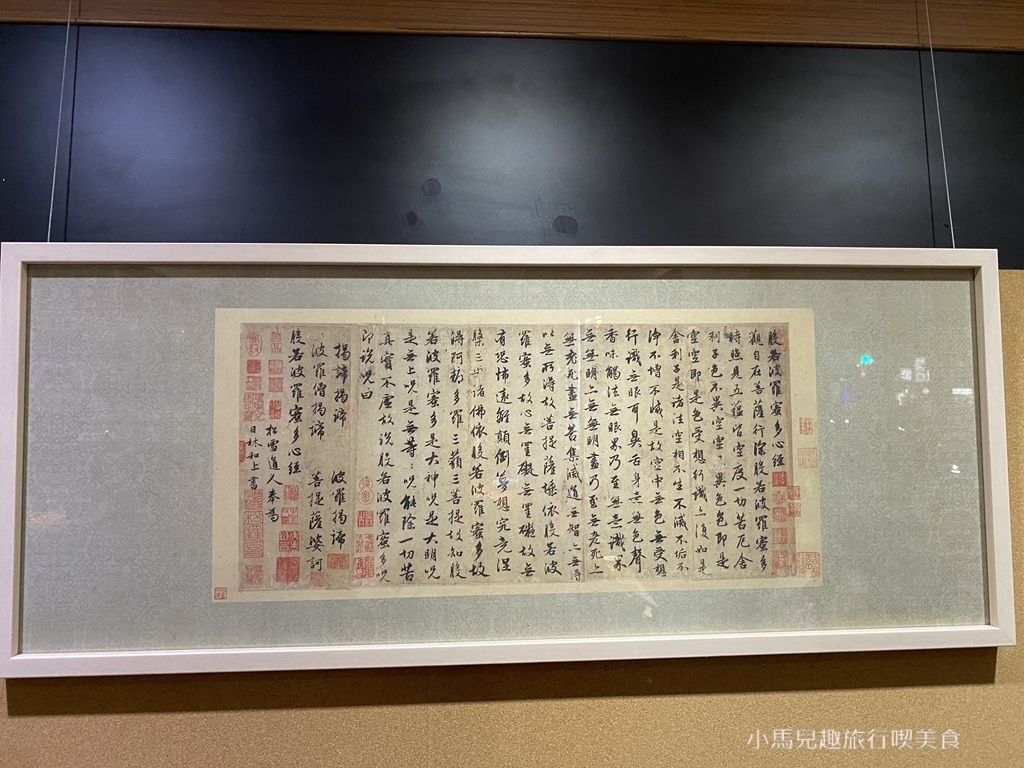 般若波羅蜜多心經
觀自在菩薩行深般若波羅蜜多
時照見五蘊皆空度一切苦厄舍
利子色不異空空不異色色即是
空空即是色受想行識亦復如是
舍利子是諸法空相不生不滅不垢不
淨不增不減是故空中無色無受想
行識無眼耳鼻舌身意無色聲
香味觸法無眼界乃至無意識界
無無明亦無無明盡乃至無老死亦
無老死盡無苦集滅道無智亦無得
以無所得故菩提薩埵依般若波
羅蜜多故心無罣礙無罣礙故無
有恐怖遠離顛倒夢想究竟涅
槃三世諸佛依般若波羅蜜多故
得阿耨多羅三藐三菩提故知般
若波羅蜜多是大神咒是大明咒
是無上咒是無等等咒能除一切苦
真實不虛故說般若波羅蜜多咒
即說咒曰
揭諦揭諦 波羅揭諦
波羅僧揭諦 菩提薩婆訶
般若波羅蜜多心經
松雪道人奉為
日林和上書
小馬兒趣旅行喫美食